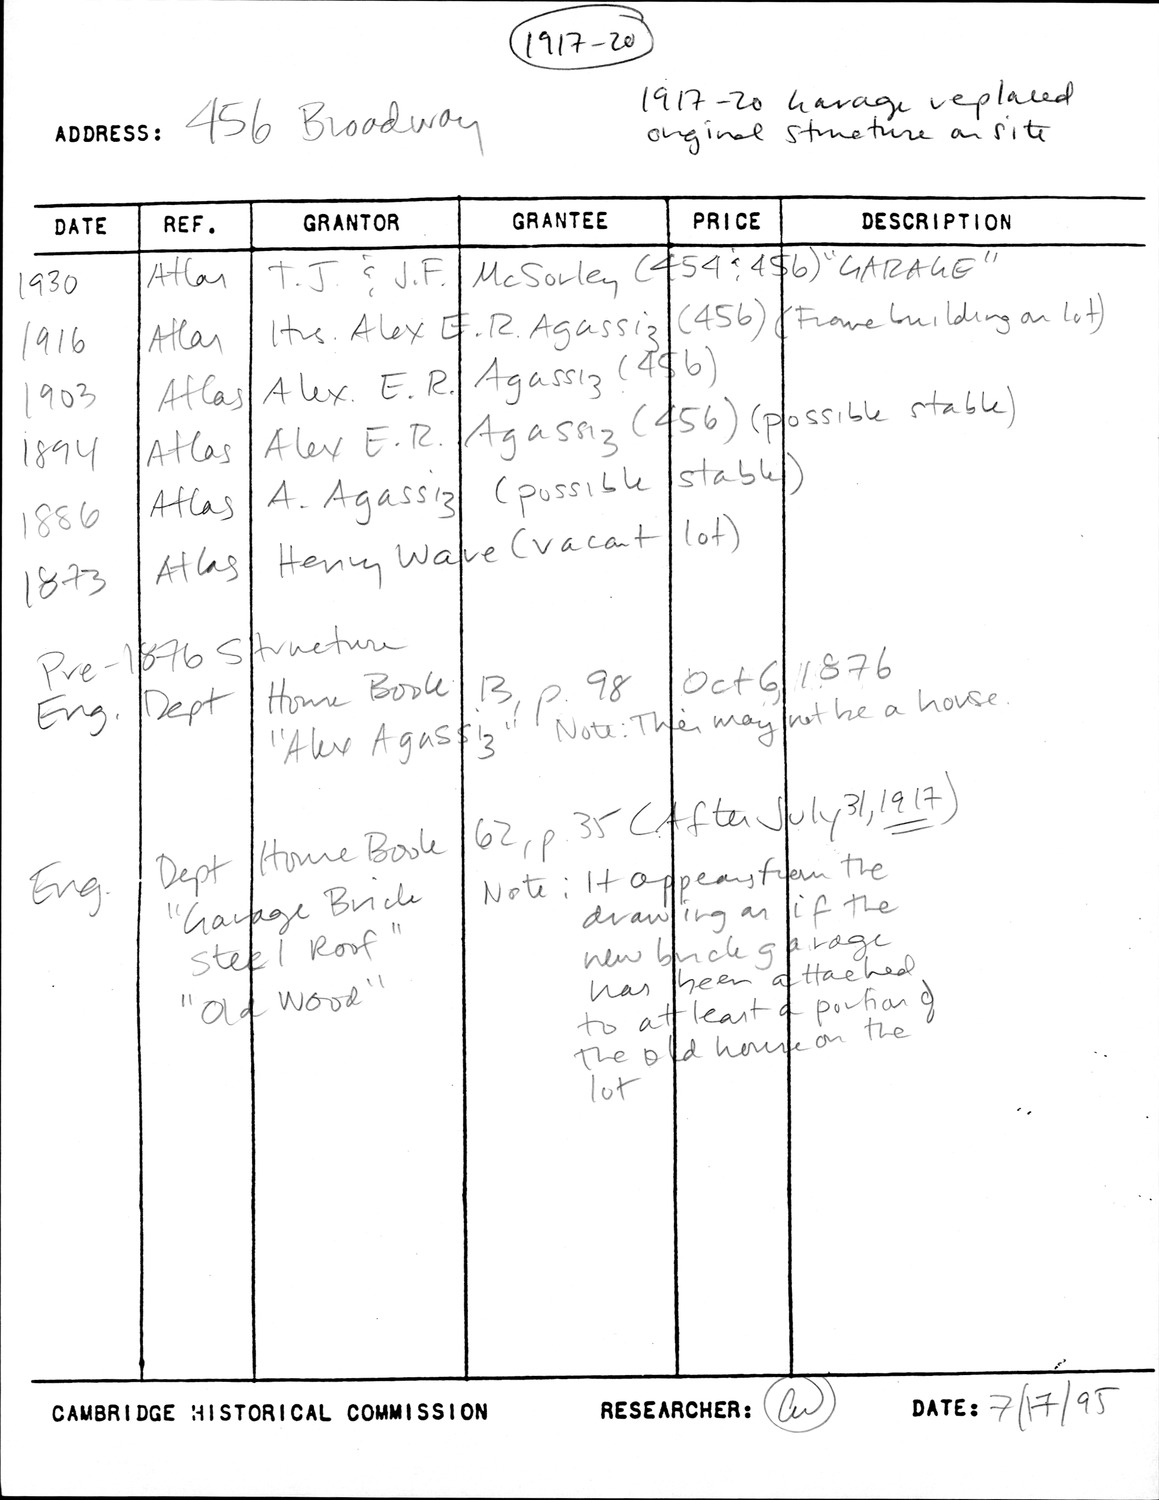 1917-20
ADDRESS: 456 Broadway
1917-20 Garage replaced
original structure on site
DATE REF. GRANTOR GRANTEE PRICE DESCRIPTION
1930 Atlas T.J. & J.F. McSorley (454 & 456) "GARAGE"
1916 Atlas Hrs. Alex E.R. Agassiz (456) (Frame building on lot)
1903 Atlas Alex. E.R. Agassiz (456)
1894 Atlas Alex E.R. Agassiz (456) (possible stable)
1886 Atlas A. Agassiz (possible stable)
1873 Atlas Henry Ware (vacant lot)
Pre-1876 Structure
Eng. Dept House Book 13, p. 98 Oct 6, 1876
"Alex Agassiz" Note: This may not be a house.
Eng. Dept House Book 62, p. 35 (After July 31, 1917)
"Garage Brick
Steel Roof"
"Old Wood"
Note: It appears from the
drawing as if the
new brick garage
has been attached
to at least a portion of
the old house on the
lot
CAMBRIDGE HISTORICAL COMMISSION RESEARCHER: DATE: 7/17/95